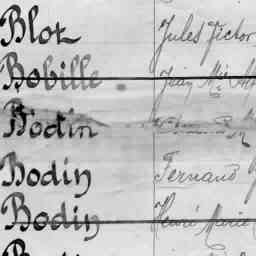 Blot Jules Victor
Bobille Jean Mie
Bodin
Bodin Fernand
Bodin Henri Marie